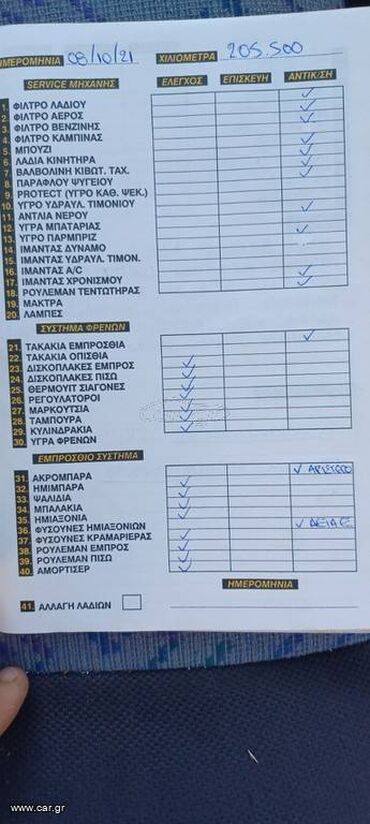 ΗΜΕΡΟΜΗΝΙΑ 08/10/21 ΧΙΛΙΟΜΕΤΡΑ 205.500
SERVICE ΜΗΧΑΝΗΣ ΕΛΕΓΧΟΣ ΕΠΙΣΚΕΥΗ ΑΝΤΙΚ/ΣΗ
1. ΦΙΛΤΡΟ ΛΑΔΙΟΥ ✓
2. ΦΙΛΤΡΟ ΑΕΡΟΣ ✓
3. ΦΙΛΤΡΟ ΒΕΝΖΙΝΗΣ ✓
4. ΦΙΛΤΡΟ ΚΑΜΠΙΝΑΣ ✓
5. ΜΠΟΥΖΙ ✓
6. ΛΑΔΙΑ ΚΙΝΗΤΗΡΑ ✓
7. ΒΑΛΒΟΛΙΝΗ ΚΙΒΩΤ. ΤΑΧ. ✓
8. ΠΑΡΑΦΛΟΥ ΨΥΓΕΙΟΥ
9. PROTECT (ΥΓΡΟ ΚΑΘ. ΨΕΚ.)
10. ΥΓΡΟ ΥΔΡΑΥΛ. ΤΙΜΟΝΙΟΥ
11. ΑΝΤΛΙΑ ΝΕΡΟΥ ✓
12. ΥΓΡΑ ΜΠΑΤΑΡΙΑΣ
13. ΥΓΡΟ ΠΑΡΜΠΡΙΖ ✓
14. ΙΜΑΝΤΑΣ ΔΥΝΑΜΟ
15. ΙΜΑΝΤΑΣ ΥΔΡΑΥΛ. ΤΙΜΟΝ.
16. ΙΜΑΝΤΑΣ A/C
17. ΙΜΑΝΤΑΣ ΧΡΟΝΙΣΜΟΥ ✓
18. ΡΟΥΛΕΜΑΝ ΤΕΝΤΩΤΗΡΑΣ ✓
19. ΜΑΚΤΡΑ
20. ΛΑΜΠΕΣ
ΣΥΣΤΗΜΑ ΦΡΕΝΩΝ
21. ΤΑΚΑΚΙΑ ΕΜΠΡΟΣΘΙΑ ✓
22. ΤΑΚΑΚΙΑ ΟΠΙΣΘΙΑ
23. ΔΙΣΚΟΠΛΑΚΕΣ ΕΜΠΡΟΣ ✓
24. ΔΙΣΚΟΠΛΑΚΕΣ ΠΙΣΩ ✓
25. ΘΕΡΜΟΥΙΤ ΣΙΑΓΟΝΕΣ ✓
26. ΡΕΓΟΥΛΑΤΟΡΟΙ ✓
27. ΜΑΡΚΟΥΤΣΙΑ ✓
28. ΤΑΜΠΟΥΡΑ ✓
29. ΚΥΛΙΝΔΡΑΚΙΑ ✓
30. ΥΓΡΑ ΦΡΕΝΩΝ
ΕΜΠΡΟΣΘΙΟ ΣΥΣΤΗΜΑ
31. ΑΚΡΟΜΠΑΡΑ ✓ ΑΡΙΣΤΕΡΟ
32. ΗΜΙΜΠΑΡΑ ✓
33. ΨΑΛΙΔΙΑ ✓
34. ΜΠΑΛΑΚΙΑ ✓
35. ΗΜΙΑΞΟΝΙΑ ✓
36. ΦΥΣΟΥΝΕΣ ΗΜΙΑΞΟΝΙΩΝ ✓
37. ΦΥΣΟΥΝΕΣ ΚΡΑΜΑΡΙΕΡΑΣ ✓
38. ΡΟΥΛΕΜΑΝ ΕΜΠΡΟΣ ✓
39. ΡΟΥΛΕΜΑΝ ΠΙΣΩ ✓
40. ΑΜΟΡΤΙΣΕΡ ✓
ΗΜΕΡΟΜΗΝΙΑ
41. ΑΛΛΑΓΗ ΛΑΔΙΩΝ
www.car.gr